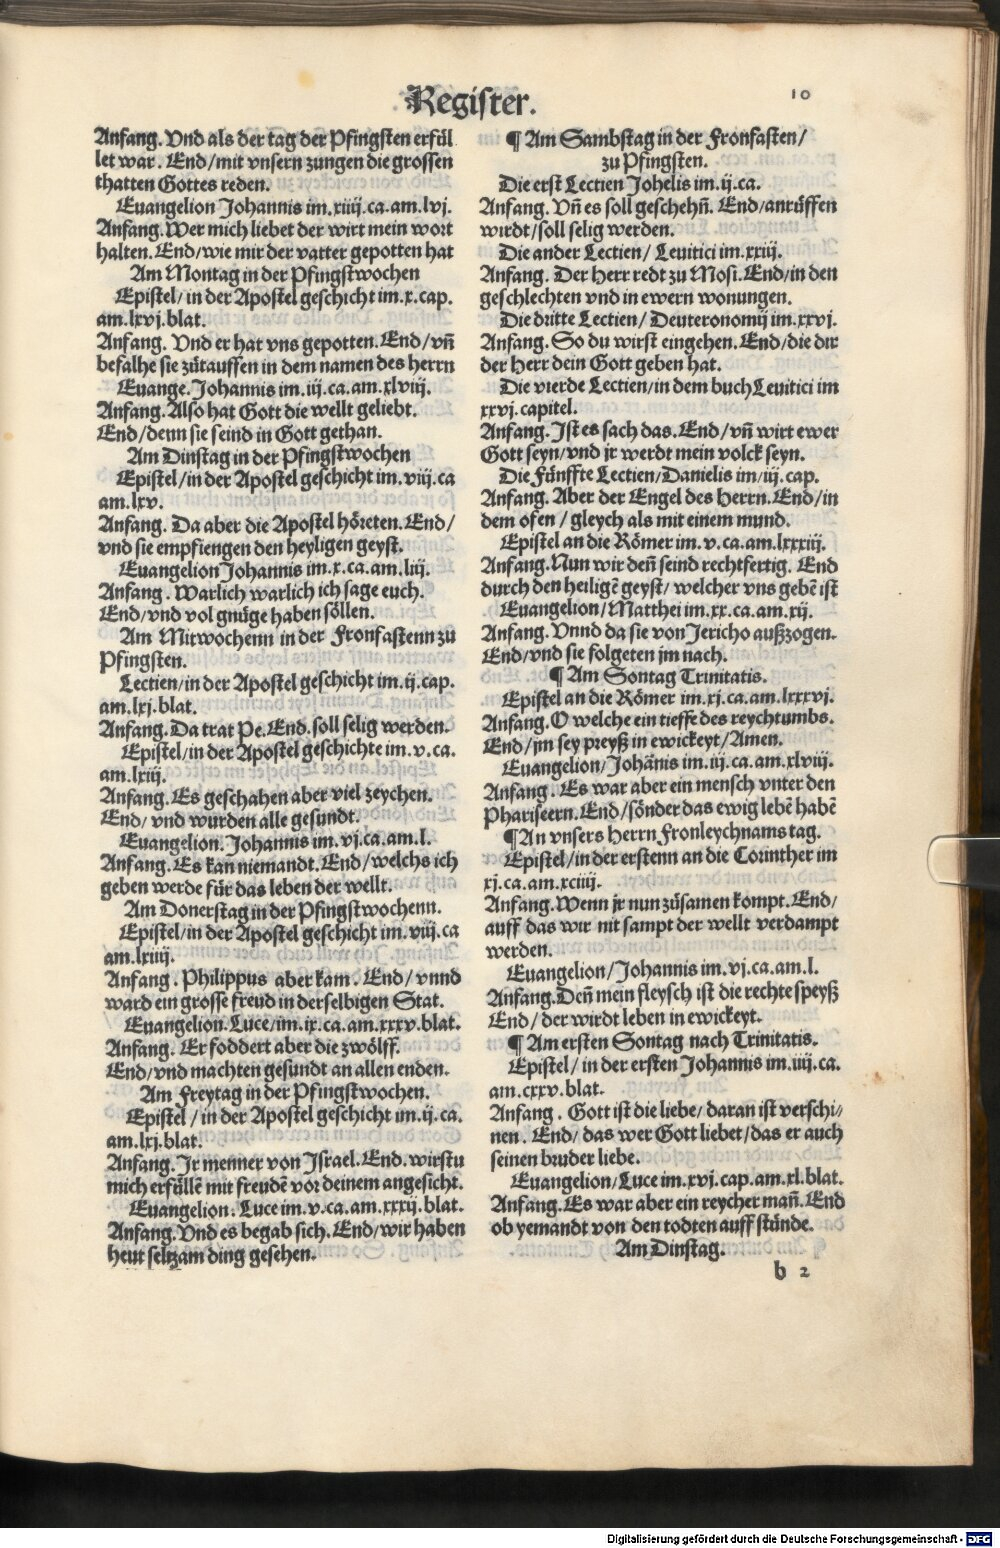 Register.
10
Anfang. Vnd als der tag der Pfingsten erfül
let war. End/mit vnsern zungen die grossen
thatten Gottes reden.
Euangelion Johannis im.xiiij.ca.am.lvj.
Anfang. Wer mich liebet der wirt mein wort
halten. End/wie mir der vatter gepotten hat
Am Montag in der Pfingstwochen
Epistel/in der Apostel geschicht im.x.cap.
am.lxvj.blat.
Anfang. Vnd er hat vns gepotten. End/vñ
befalhe sie zůtauffen in dem namen des herrn
Euange. Johannis im.iij.ca.am.xlviij.
Anfang. Also hat Gott die wellt geliebt.
End/denn sie seind in Gott gethan.
Am Dinstag in der Pfingstwochen
Epistel/in der Apostel geschicht im.viij.ca
am.lxv.
Anfang. Da aber die Apostel höreten. End/
vnd sie empfiengen den heyligen geyst.
Euangelion Johannis im.x.ca.am.liij.
Anfang. Warlich warlich ich sage euch.
End/vnd vol gnüge haben söllen.
Am Mitwochenn in der Fronfastenn zu
Pfingsten.
Lectien/in der Apostel geschicht im.ij.cap.
am.lxj.blat.
Anfang. Da trat Pe. End. soll selig werden.
Epistel/in der Apostel geschichte im.v.ca.
am.lxiij.
Anfang. Es geschahen aber viel zeychen.
End/ vnd wurden alle gesundt.
Euangelion. Johannis im.vj.ca.am.l.
Anfang. Es kañ niemandt. End/welchs ich
geben werde für das leben der wellt.
Am Donerstag in der Pfingstwochenn.
Epistel/in der Apostel geschicht im.viij.ca
am.lxiiij.
Anfang. Philippus aber kam. End/vnnd
ward ein grosse freud in derselbigen Stat.
Euangelion. Luce/im.ix.ca.am.xxxv.blat.
Anfang. Er foddert aber die zwölff.
End/vnd machten gesundt an allen enden.
Am Freytag in der Pfingstwochen.
Epistel/in der Apostel geschicht im.ij.ca.
am.lxj.blat.
Anfang. Jr menner von Jsrael. End. wirstu
mich erfüllē mit freudē vor deinem angesicht.
Euangelion. Luce im.v.ca.am.xxxij.blat.
Anfang. Vnd es begab sich. End/wir haben
heut seltzam ding gesehen.
¶ Am Sambstag in der Fronfasten/
zu Pfingsten.
Die erst Lectien Johelis im.ij.ca.
Anfang. Vñ es soll geschehñ. End/anrüffen
wirdt/soll selig werden.
Die ander Lectien/ Leuitici im.xxiij.
Anfang. Der herr redt zu Mosi. End/in den
geschlechten vnd in ewern wonungen.
Die dritte Lectien/ Deuteronomij im.xxvj.
Anfang. So du wirst eingehen. End/die dir
der herr dein Gott geben hat.
Die vierde Lectien/in dem buch Leuitici im
xxvj.capitel.
Anfang. Jst es sach das. End/vñ wirt ewer
Gott seyn/vnd jr werdt mein volck seyn.
Die Fünffte Lectien/Danielis im/iij.cap.
Anfang. Aber der Engel des herrn. End/in
dem ofen/gleych als mit einem mund.
Epistel an die Römer im.v.ca.am.lxxxiij.
Anfang. Nun wir deñ seind rechtfertig. End
durch den heiligē geyst/welcher vns gebē ist
Euangelion/Matthei im.xx.ca.am.xij.
Anfang. Vnnd da sie von Jericho außzogen.
End/vnd sie folgeten jm nach.
¶ Am Sontag Trinitatis.
Epistel an die Römer im.xj.ca.am.lxxxvj.
Anfang. O welche ein tieffe des reychtumbs.
End/jm sey preyß in ewickeyt/Amen.
Euangelion/Johānis im.iij.ca.am.xlviij.
Anfang. Es war aber ein mensch vnter den
Phariseern. End/sönder das ewig lebē habē
¶ An vnsers herrn Fronleychnams tag.
Epistel/in der erstenn an die Corinther im
xj.ca.am.xciiij.
Anfang. Wenn jr nun zůsamen kompt. End/
auff das wir nit sampt der wellt verdampt
werden.
Euangelion/Johannis im.vj.ca.am.l.
Anfang. Deñ mein fleysch ist die rechte speyß
End/ der wirdt leben in ewickeyt.
¶ Am ersten Sontag nach Trinitatis.
Epistel/in der ersten Johannis im.iiij.ca.
am.cxxv.blat.
Anfang. Gott ist die liebe/daran ist verschi/
nen. End/ das wer Gott liebet/das er auch
seinen bruder liebe.
Euangelion/Luce im.xvj.cap.am.xl.blat.
Anfang. Es war aber ein reycher mañ. End
ob yemandt von den todten auff stünde.
Am Dinstag.
b 2
Digitalisierung gefördert durch die Deutsche Forschungsgemeinschaft - DFG